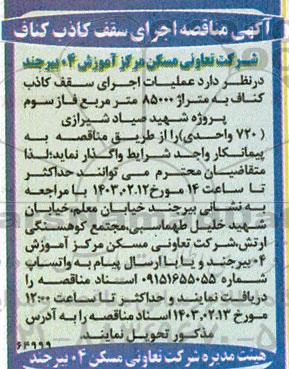 آگهی مناقصه اجرای سقف کاذب کناف
شرکت تعاونی مسکن مرکز آموزش ۰۴ بیرجند
درنظر دارد عملیات اجرای سقف کاذب
کناف به متراژ ۸۵۰۰۰ متر مربع فاز سوم
پروژه شهید صیاد شیرازی
(۷۲۰ واحدی) را از طریق مناقصه به
پیمانکار واجد شرایط واگذار نماید؛ لذا
متقاضیان محترم می توانند حداکثر
تا ساعت ۱۴ مورخ ۱۴۰۳.۰۲.۱۲ با مراجعه
به نشانی بیرجند خیابان معلم، خیابان
شهید خلیل طهماسبی، مجتمع کوهسنگی
ارتش، شرکت تعاونی مسکن مرکز آموزش
۰۴ بیرجند و یا با ارسال پیام به واتساپ
شماره ۰۹۱۵۱۶۵۵۰۵۵ اسناد مناقصه را
دریافت نمایند و حداکثر تا ساعت ۱۲:۰۰
مورخ ۱۴۰۳.۰۲.۱۳ اسناد مناقصه را به آدرس
مذکور تحویل نمایند
۶۴۹۹۹
هیئت مدیره شرکت تعاونی مسکن ۰۴ بیرجند